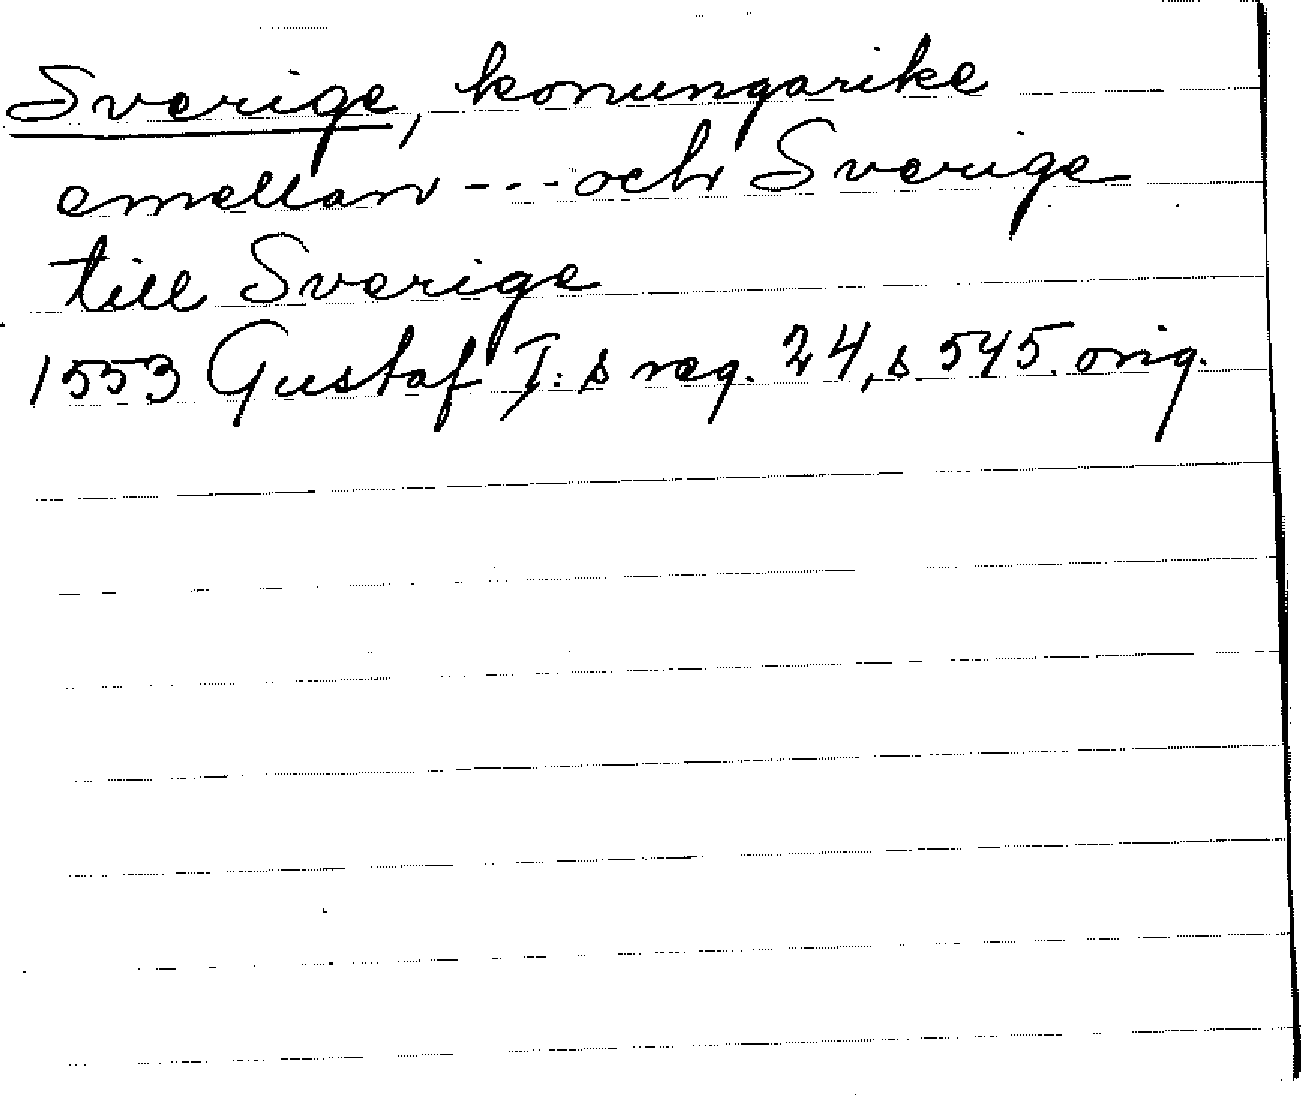 Sverige, konungarike
emellan --- och Sverige
till Sverige
1553 Gustaf I:s reg. 24, s 545. orig.